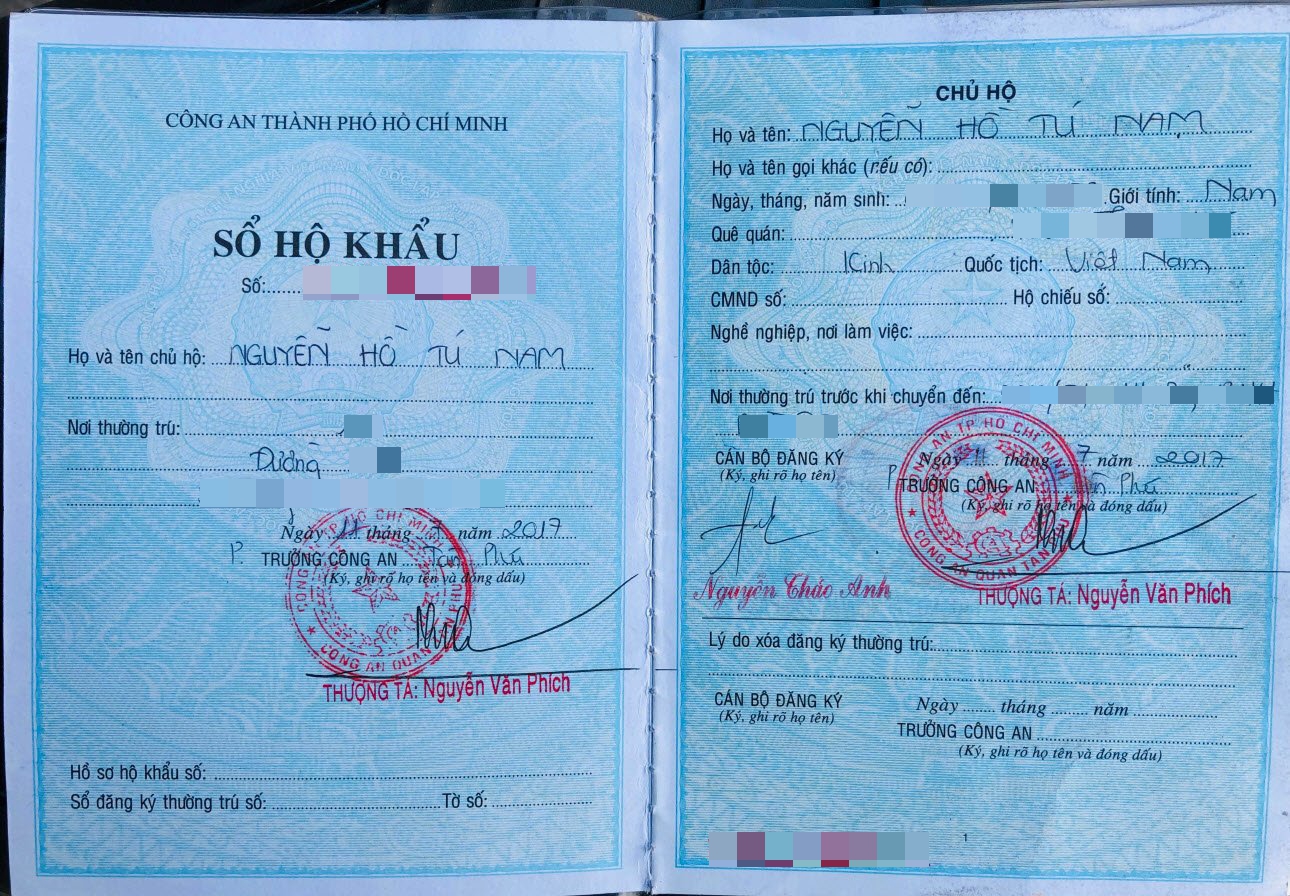 CÔNG AN THÀNH PHỐ HỒ CHÍ MINH
SỔ HỘ KHẨU
Số:
Họ và tên chủ hộ: NGUYỄN HỒ TÚ NAM
Nơi thường trú:
Đường
Ngày 11 tháng 7 năm 2017
P TRƯỞNG CÔNG AN Tân Phú
(Ký, ghi rõ họ tên và đóng dấu)
CÔNG AN QUẬN TÂN PHÚ
TP HỒ CHÍ MINH
THƯỢNG TÁ: Nguyễn Văn Phích
Hồ sơ hộ khẩu số:
Sổ đăng ký thường trú số: Tờ số:
CHỦ HỘ
Họ và tên: NGUYỄN HỒ TÚ NAM
Họ và tên gọi khác (nếu có):
Ngày, tháng, năm sinh: Giới tính: Nam
Quê quán:
Dân tộc: Kinh Quốc tịch: Việt Nam
CMND số: Hộ chiếu số:
Nghề nghiệp, nơi làm việc:
Nơi thường trú trước khi chuyển đến:
CÁN BỘ ĐĂNG KÝ
(Ký, ghi rõ họ tên)
Ngày 11 tháng 7 năm 2017
P TRƯỞNG CÔNG AN Tân Phú
(Ký, ghi rõ họ tên và đóng dấu)
CÔNG AN TP HỒ CHÍ MINH
CÔNG AN QUẬN TÂN PHÚ
Nguyễn Cháo Anh
THƯỢNG TÁ: Nguyễn Văn Phích
Lý do xóa đăng ký thường trú:
CÁN BỘ ĐĂNG KÝ
(Ký, ghi rõ họ tên)
Ngày tháng năm
TRƯỞNG CÔNG AN
(Ký, ghi rõ họ tên và đóng dấu)
1